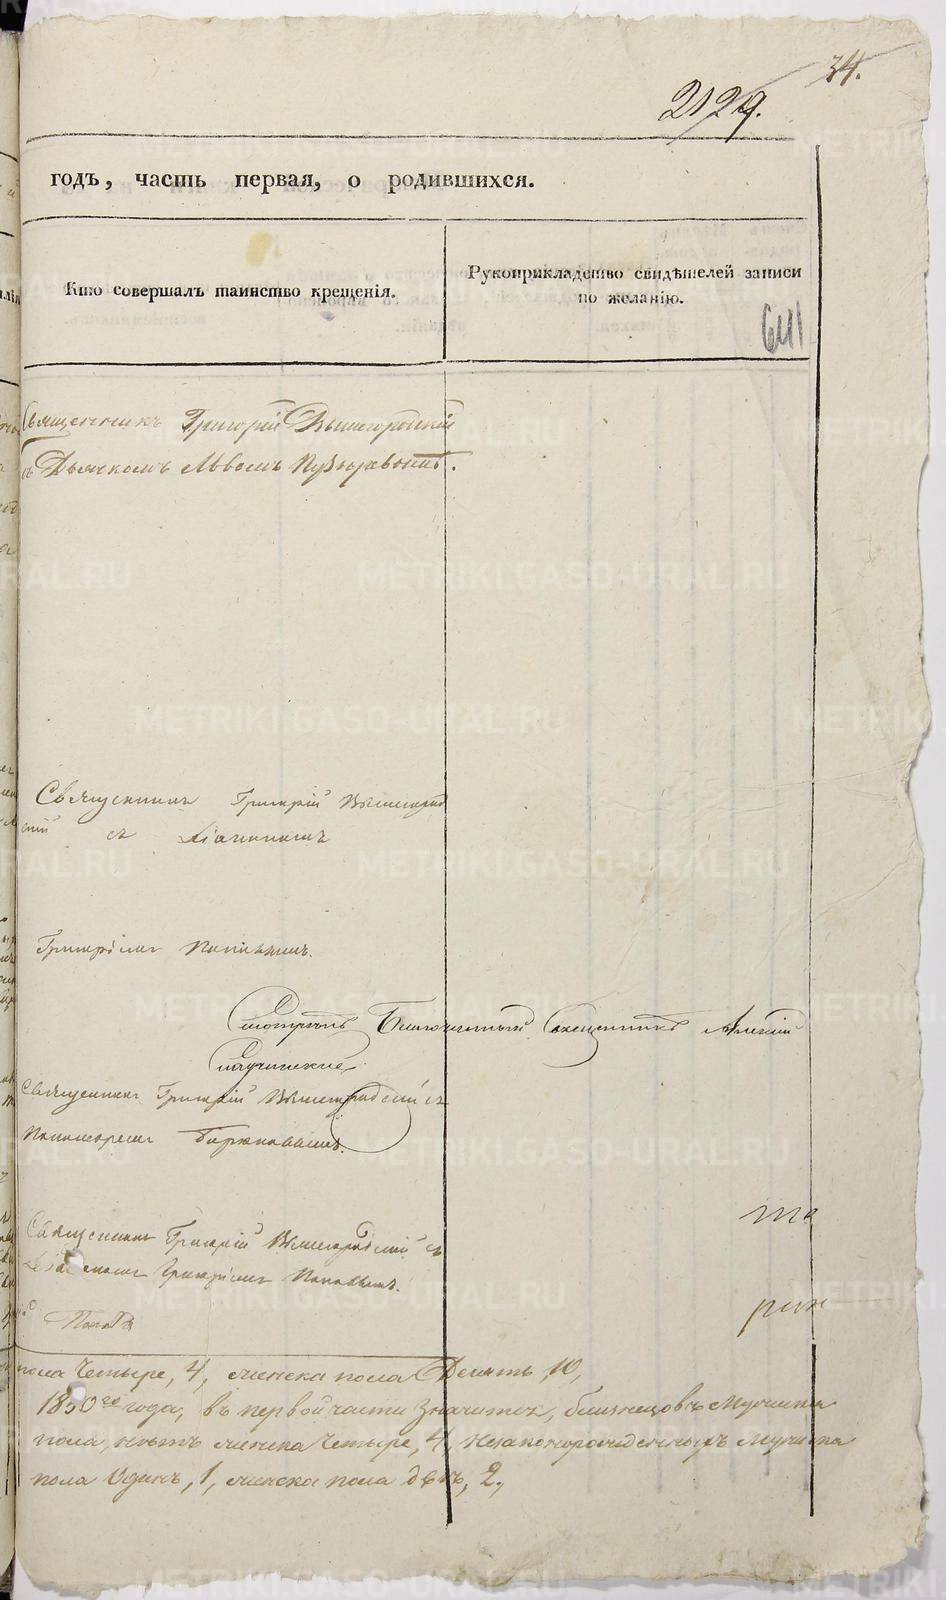 34.
2129.
годъ, часть первая, о родившихся.
Кто совершалъ таинство крещенія.
Рукоприкладство свидѣтелей записи
по желанію.
641
Священникъ Григорій Вышегородскій
съ Дьячкомъ Львомъ
Священникъ Григорій Вышегород
скій съ Діакономъ
Григоріемъ Поповымъ.
Смотрилъ Благочинный Священникъ Алексій
Священникъ Григорій Вышегородскій съ
Пономаремъ Бирюковымъ.
та
Священникъ Григорій Вышегородскій съ
Діакономъ Григоріемъ Поповымъ.
рин
пола Четыре, 4, женска пола Десять, 10,
1830го года, въ первой части Значится, близнецовъ Мужеска
пола, нѣтъ женска Четыре, 4, Незаконорожденныхъ Мужеска
пола Одинъ, 1, женска пола двѣ, 2,
METRIKI.GASO-URAL.RU